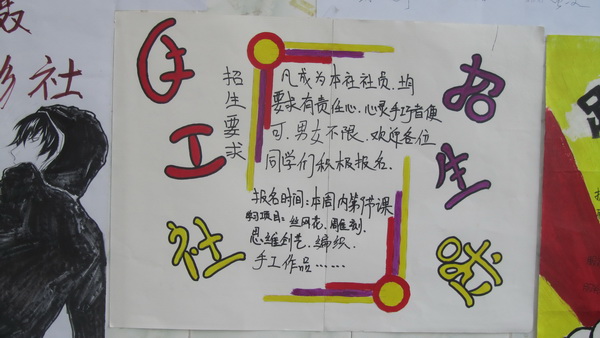 手工社
招生啦
招生要求
凡成为本社社员.均
要求有责任心.心灵手巧者优
可.男女不限.欢迎各位
同学们积极报名.
报名时间:本周内第8节课
项目:丝网花.雕刻.
思维创艺.编织.
手工作品……
社